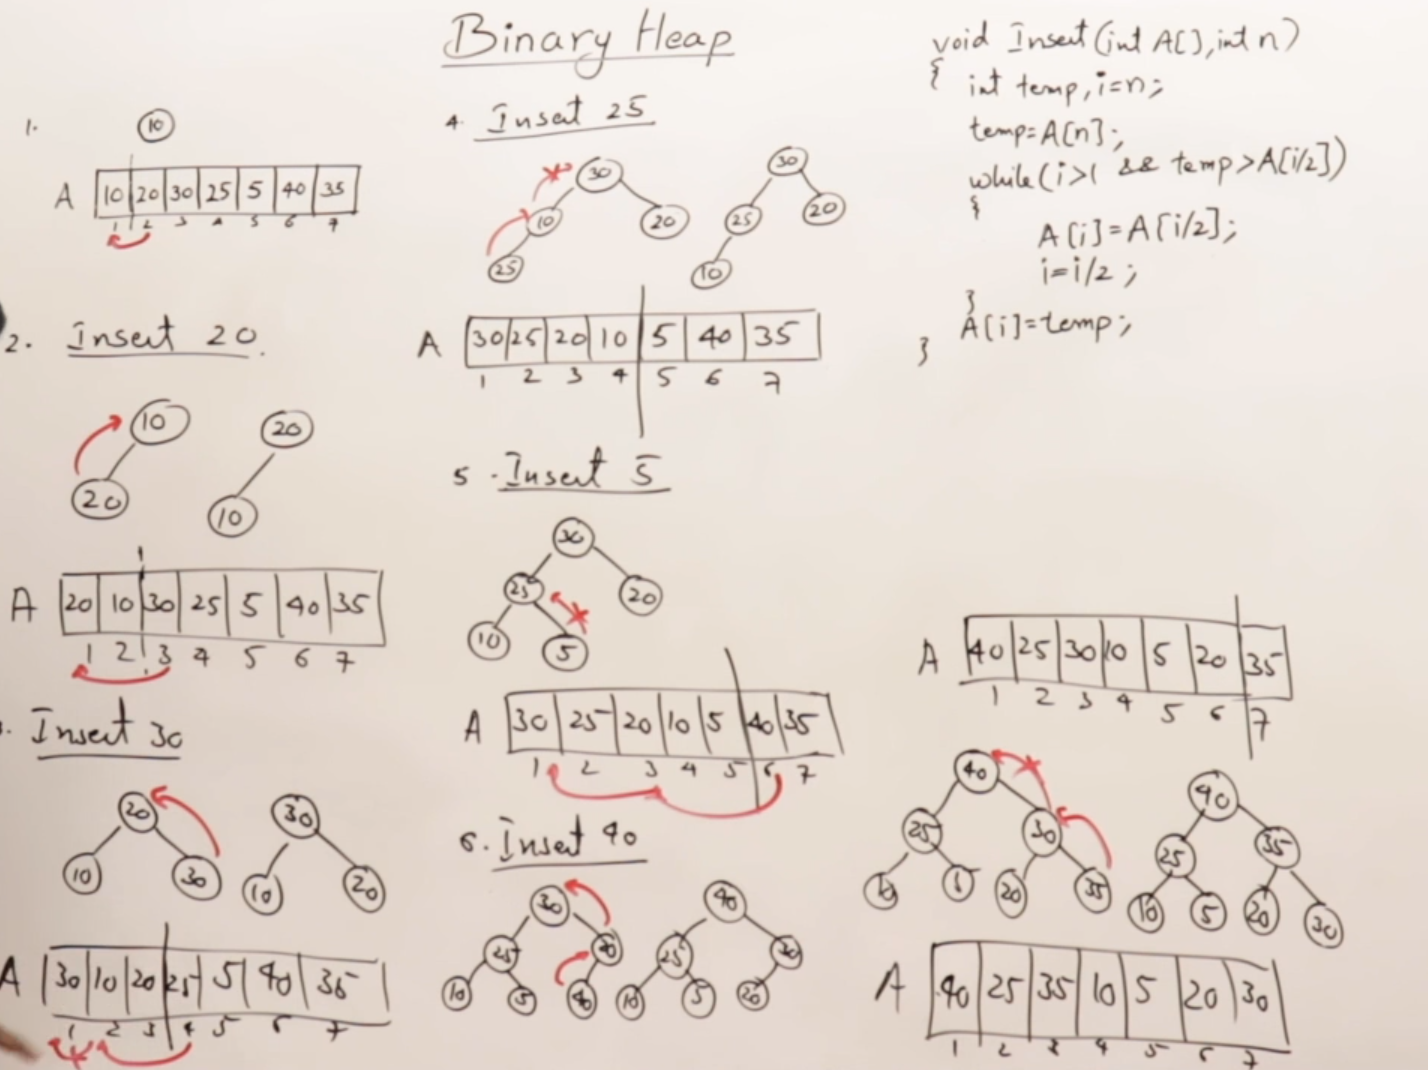 Binary Heap
1.
10
A 10 20 30 25 5 40 35
1 2 3 4 5 6 7
2. Insert 20.
10
20
20
10
A 20 10 30 25 5 40 35
1 2 3 4 5 6 7
. Insert 30
20
10 30
30
10 20
A 30 10 20 25 5 40 35
1 2 3 4 5 6 7
4. Insert 25
30
10 20
25
30
25 20
10
A 30 25 20 10 5 40 35
1 2 3 4 5 6 7
5. Insert 5
30
25 20
10 5
A 30 25 20 10 5 40 35
1 2 3 4 5 6 7
6. Insert 40
30
25 20
10 5 40
40
25 30
10 5 20
void Insert(int A[], int n)
{ int temp, i=n;
temp=A[n];
while(i>1 && temp>A[i/2])
{
A[i]=A[i/2];
i=i/2;
}
A[i]=temp;
}
A 40 25 30 10 5 20 35
1 2 3 4 5 6 7
40
25 30
10 5 20 35
40
25 35
10 5 20 30
A 40 25 35 10 5 20 30
1 2 3 4 5 6 7